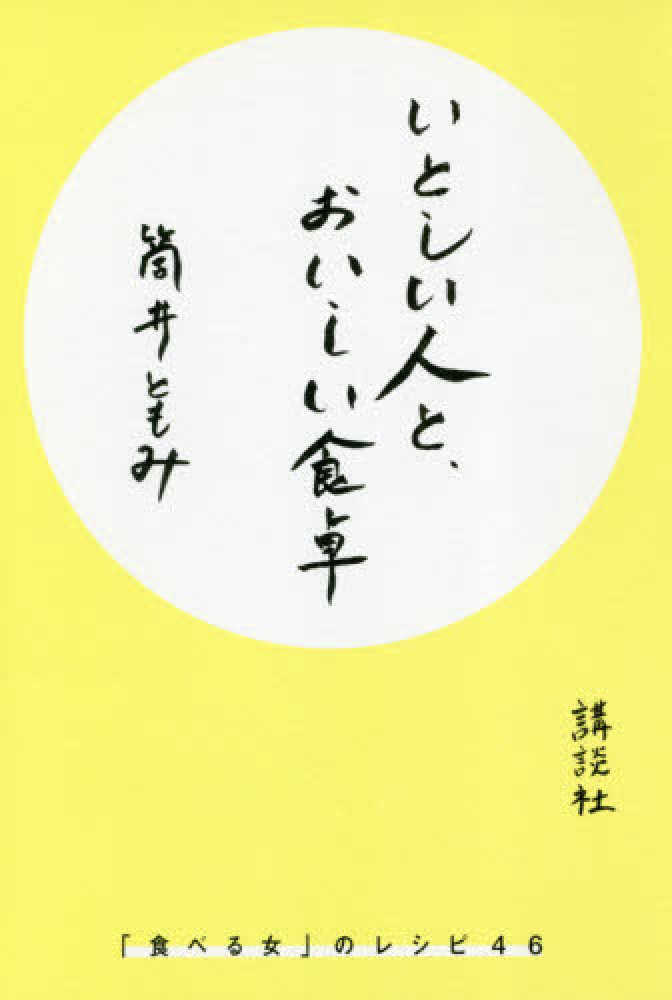 いとしい人と、
おいしい食卓
筒井ともみ
講談社
「食べる女」のレシピ46